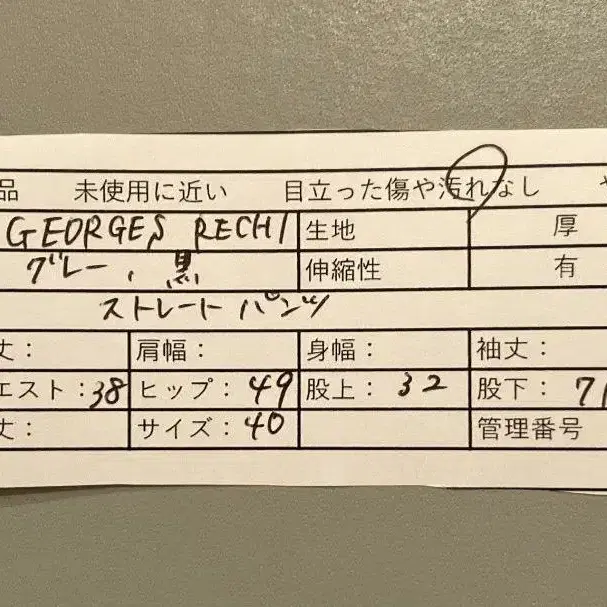 品 未使用に近い 目立った傷や汚れなし
GEORGES RECHI 生地 厚
グレー、黒 伸縮性 有
ストレートパンツ
丈： 肩幅： 身幅： 袖丈：
エスト：38 ヒップ：49 股上：32 股下：71
丈： サイズ：40 管理番号